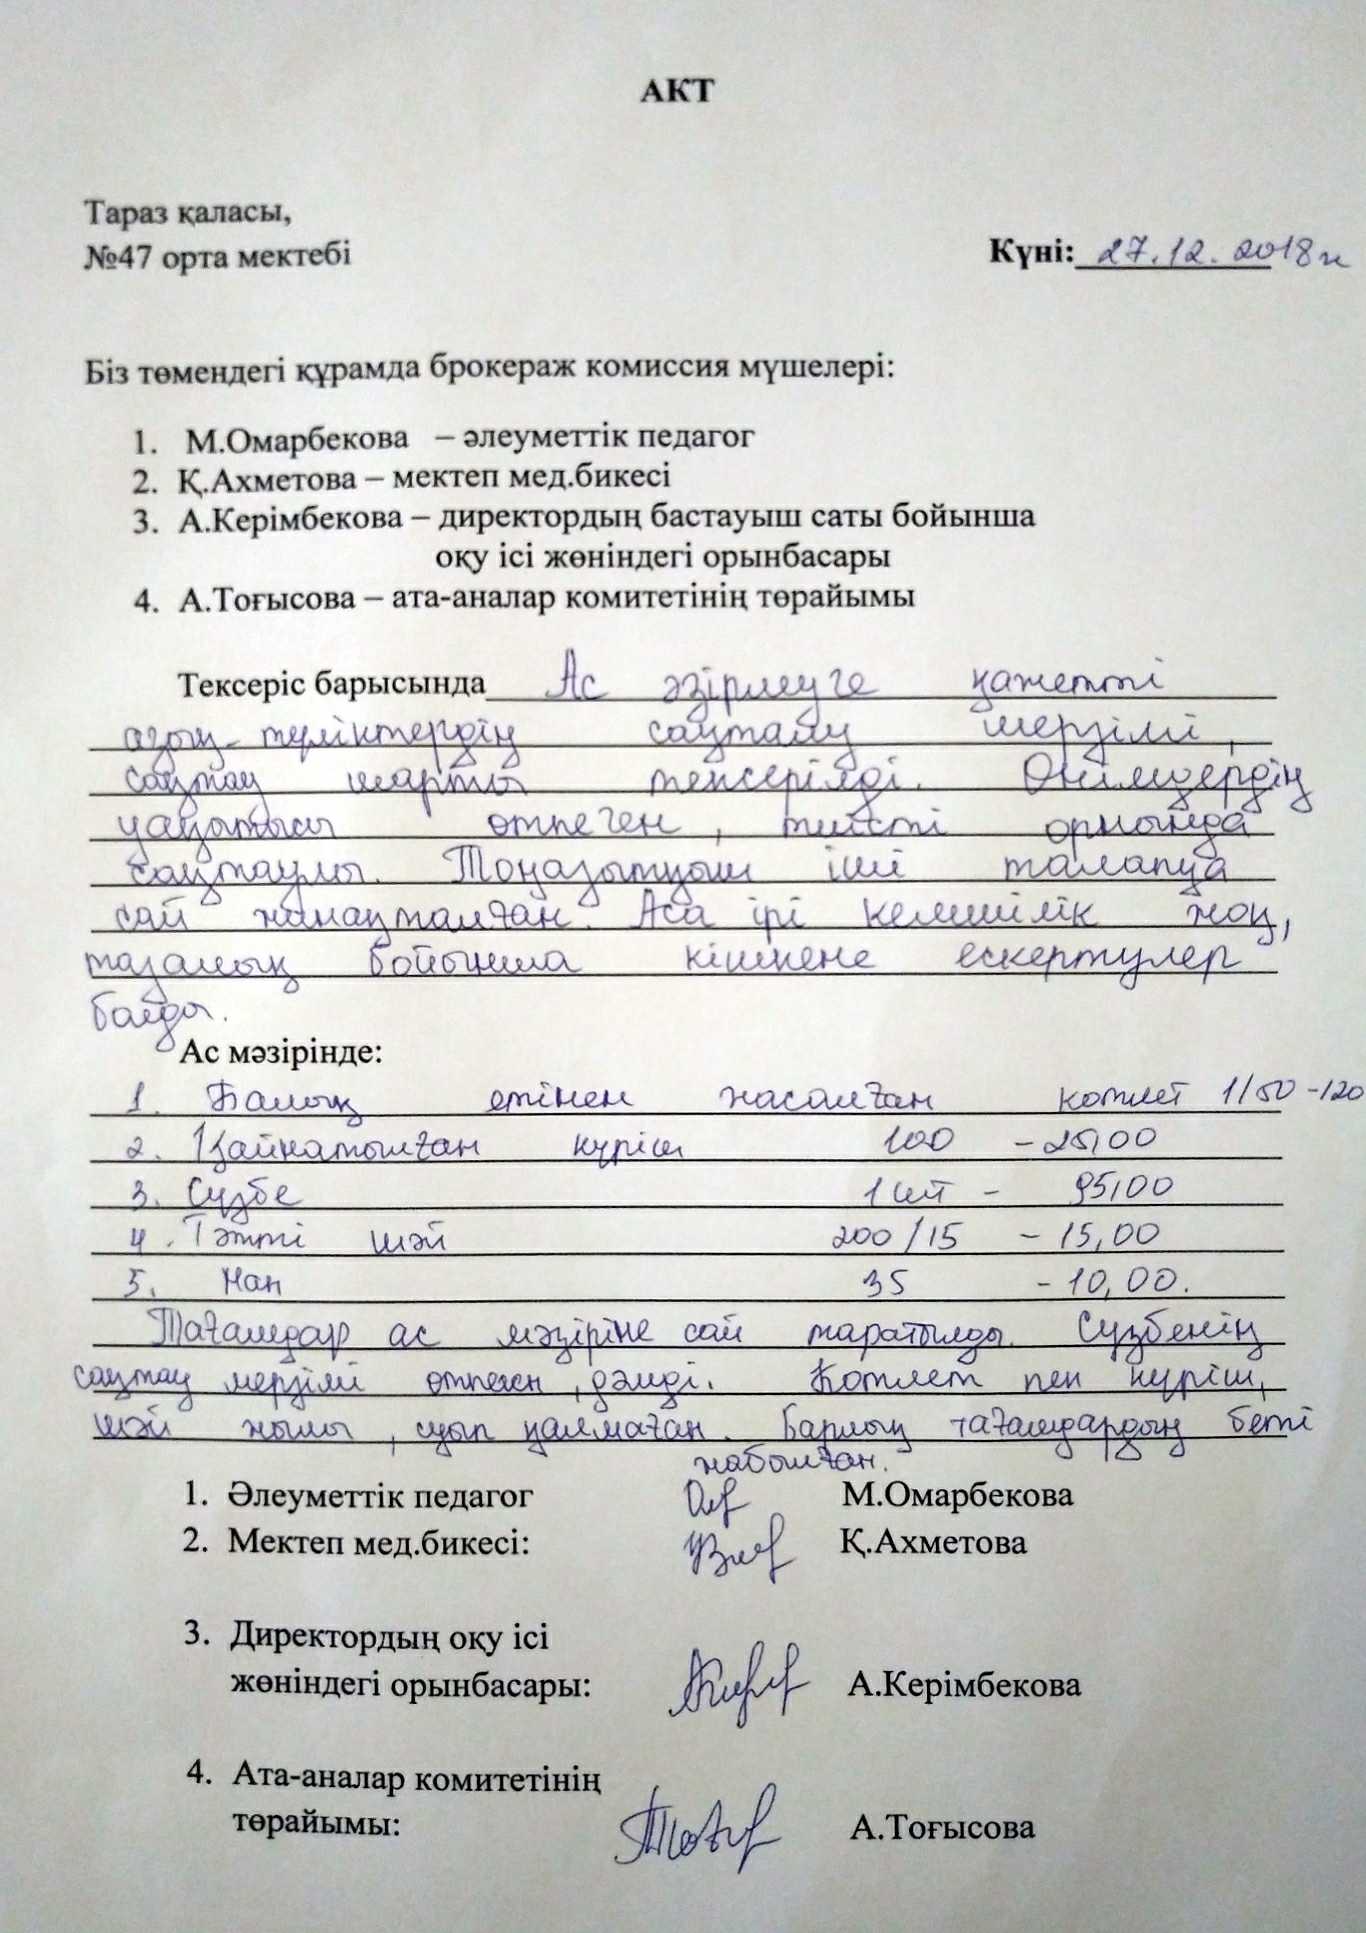 АКТ
Тараз қаласы,
№47 орта мектебі
Күні: 27.12.2018ж
Біз төмендегі құрамда брокераж комиссия мүшелері:
1. М.Омарбекова – әлеуметтік педагог
2. Қ.Ахметова – мектеп мед.бикесі
3. А.Керімбекова – директордың бастауыш саты бойынша
оқу ісі жөніндегі орынбасары
4. А.Тоғысова – ата-аналар комитетінің төрайымы
Тексеріс барысында Ас әзірлеуге қажетті
азық-түліктердің сақталу мерзімі,
сақтау шарты тексерілді. Өнімдердің
уақытысы өтпеген, тиісті орнында
сақтаулы. Тоңазытқыш іші талапқа
сай жинақталған. Аса ірі келшілік жоқ,
тазалық бойынша кішкене ескертулер
болды.
Ас мәзірінде:
1. Балық етінен жасалған котлет 1/50 -120
2. Қайнатылған күріш 100 - 25,00
3. Сүзбе 1 шт - 95,00
4. Тәтті шәй 200/15 - 15,00
5. Нан 35 - 10,00.
Тағамдар ас мәзіріне сай таратылды. Сүзбенің
сақтау мерзімі өтпеген, дәмді. Котлет пен күріш,
шәй жылы, суып қалмаған. Барлық тағамдардың беті
жабылған.
1. Әлеуметтік педагог М.Омарбекова
2. Мектеп мед.бикесі: Қ.Ахметова
3. Директордың оқу ісі
жөніндегі орынбасары: А.Керімбекова
4. Ата-аналар комитетінің
төрайымы: А.Тоғысова